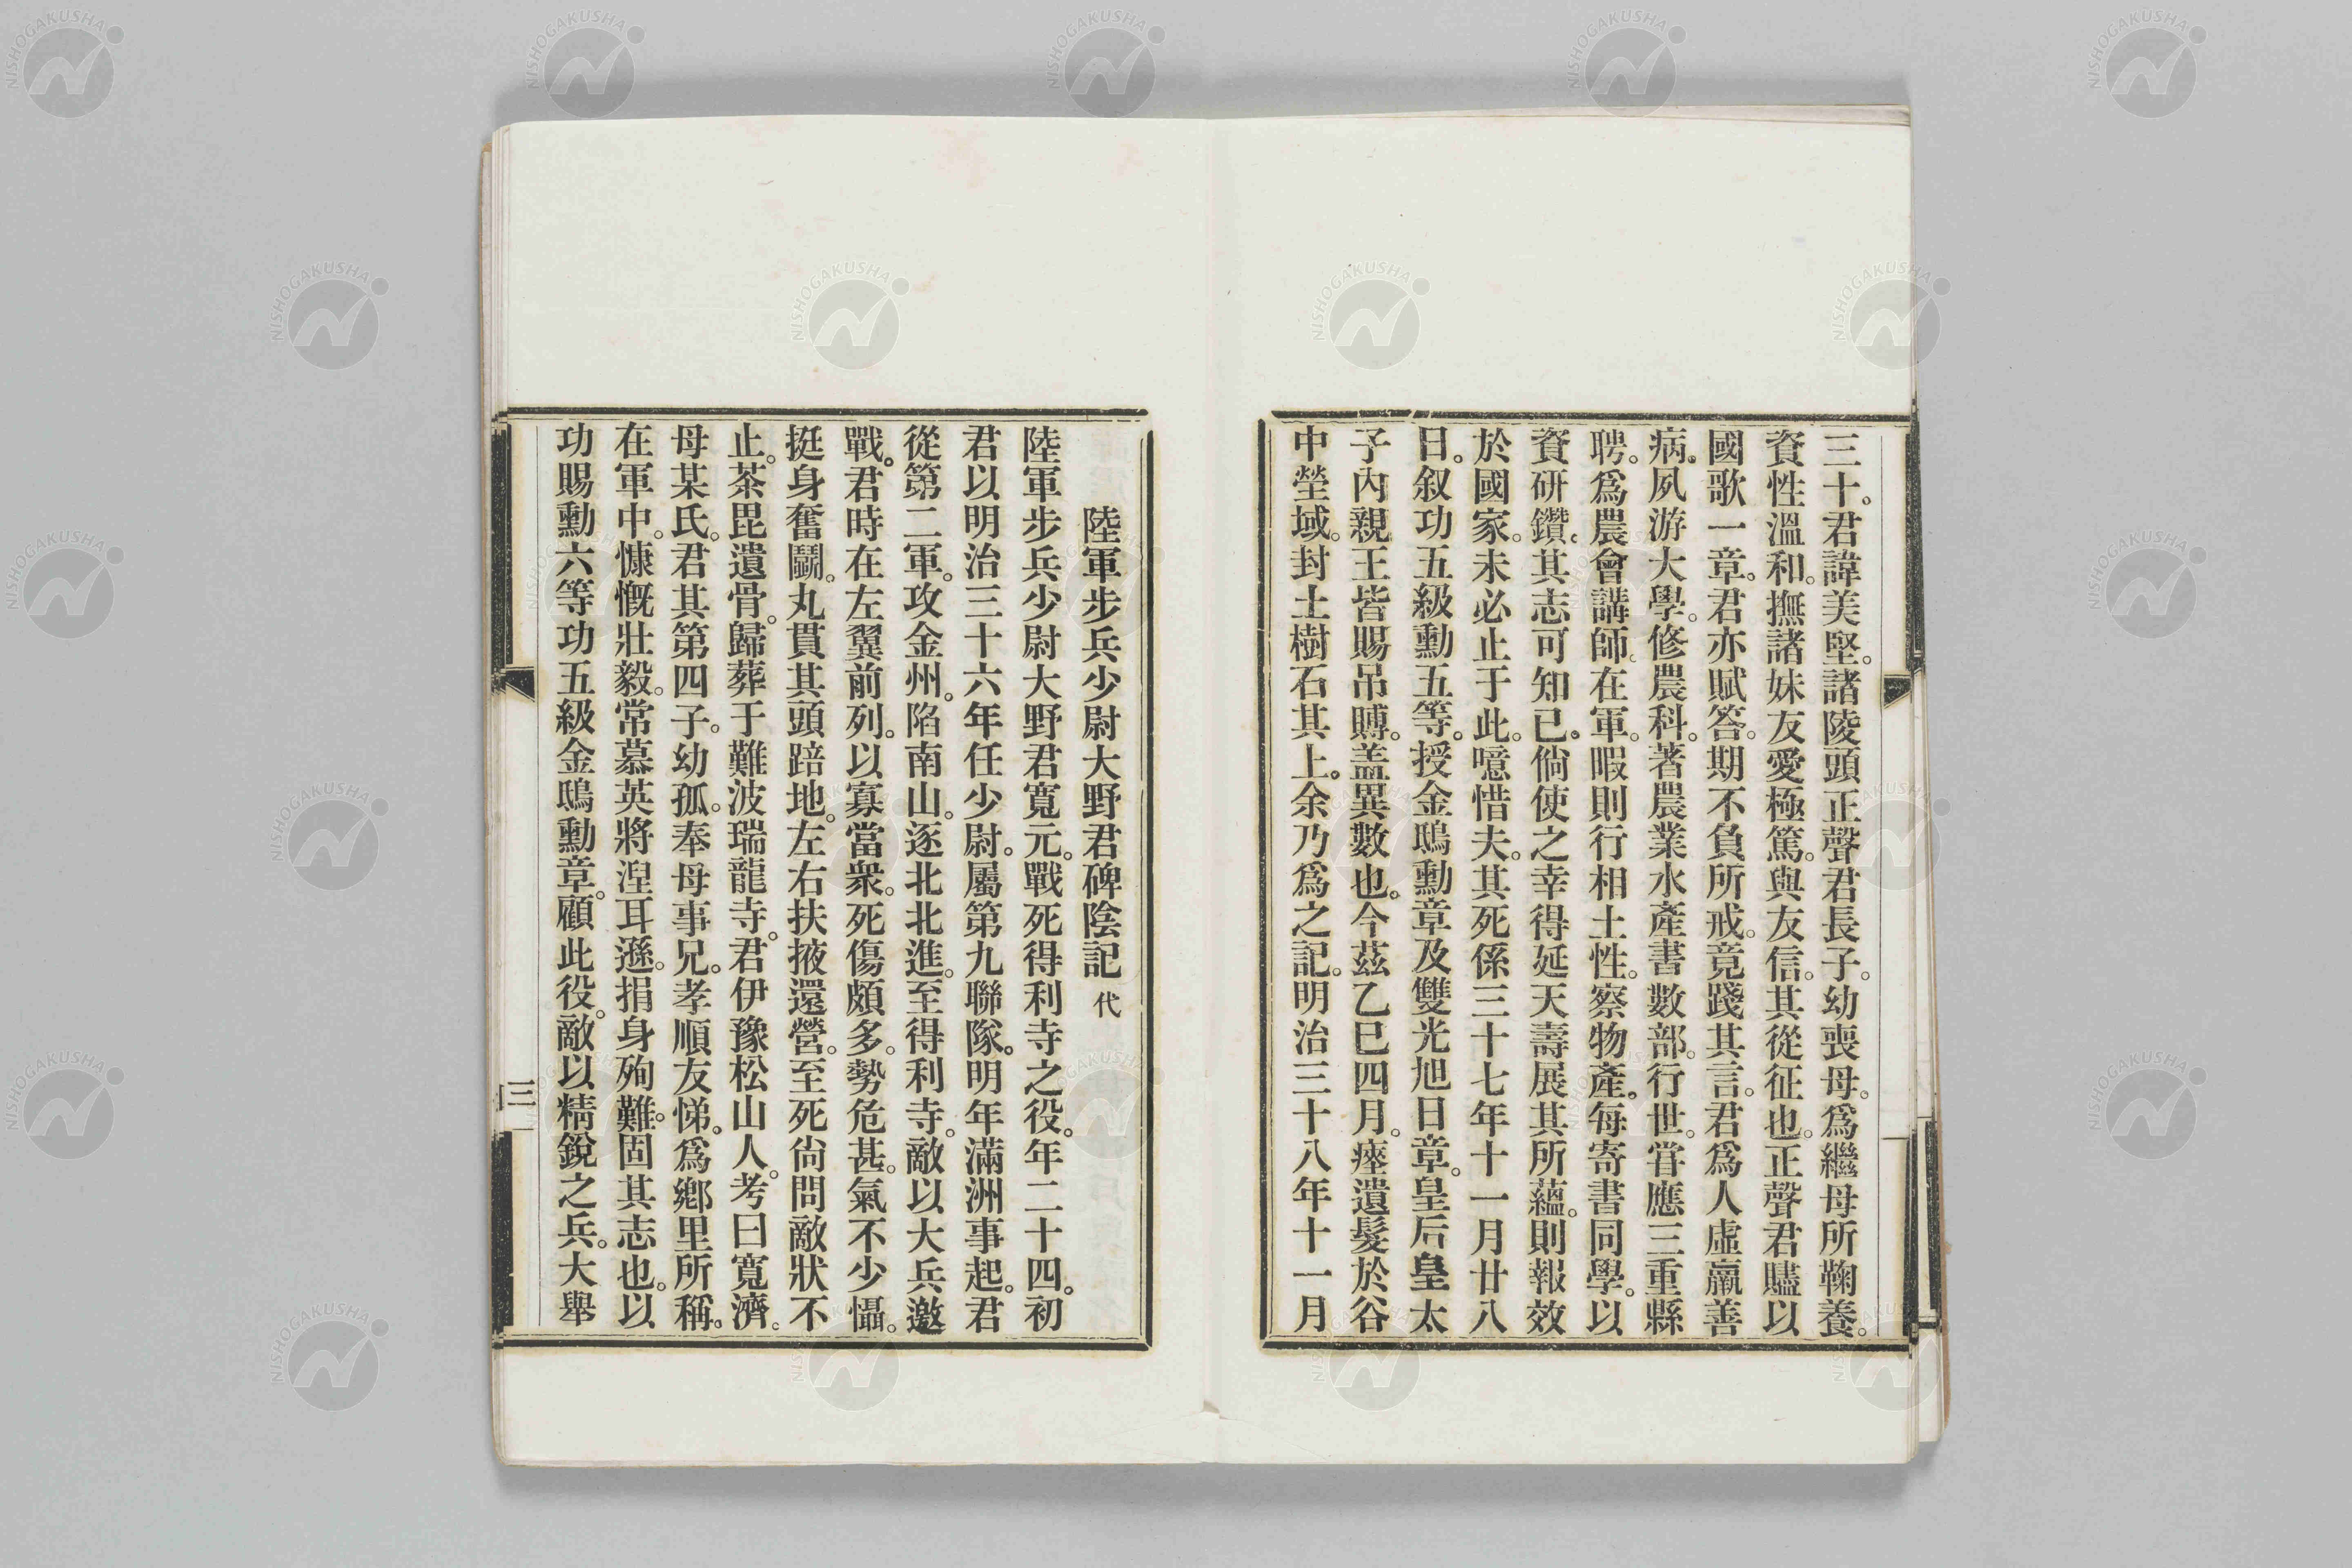 三十。君諱美堅。諸陵頭正聲君長子。幼喪母。爲繼母所鞠養。
資性溫和。撫諸妹友愛極篤。與友信。其從征也。正聲君贐以
國歌一章。君亦賦答。期不負所戒。竟踐其言。君爲人虛羸善
病。夙游大學。修農科。著農業水產書數部。行世。甞應三重縣
聘。爲農會講師。在軍。暇則行相土性。察物產。每寄書同學。以
資研鑽。其志可知已。倘使之幸得延天壽展其所蘊。則報效
於國家。未必止于此。噫惜夫。其死係三十七年十一月廿八
日。叙功五級勳五等。授金鵄勳章及雙光旭日章。皇后皇太
子內親王皆賜吊賻。盖異數也。今茲乙巳四月。瘞遺髮於谷
中塋域。封土樹石其上。余乃爲之記。明治三十八年十一月
陸軍步兵少尉大野君碑陰記 代
陸軍步兵少尉大野君寬元。戰死得利寺之役。年二十四。初
君以明治三十六年任少尉。屬第九聯隊。明年滿洲事起。君
從第二軍。攻金州。陷南山。逐北北進。至得利寺。敵以大兵邀
戰。君時在左翼前列。以寡當衆。死傷頗多。勢危甚。氣不少懾。
挺身奮鬭。丸貫其頭踣地。左右扶掖還營。至死尙問敵狀不
止。茶毘遺骨。歸葬于難波瑞龍寺。君伊豫松山人。考曰寬濟。
母某氏。君其第四子。幼孤。奉母事兄。孝順友悌。爲鄕里所稱。
在軍中。慷慨壯毅。常慕英將涅耳遜。捐身殉難。固其志也。以
功賜勳六等功五級金鵄勳章。顧此役。敵以精銳之兵。大舉
三
NISHOGAKUSHA